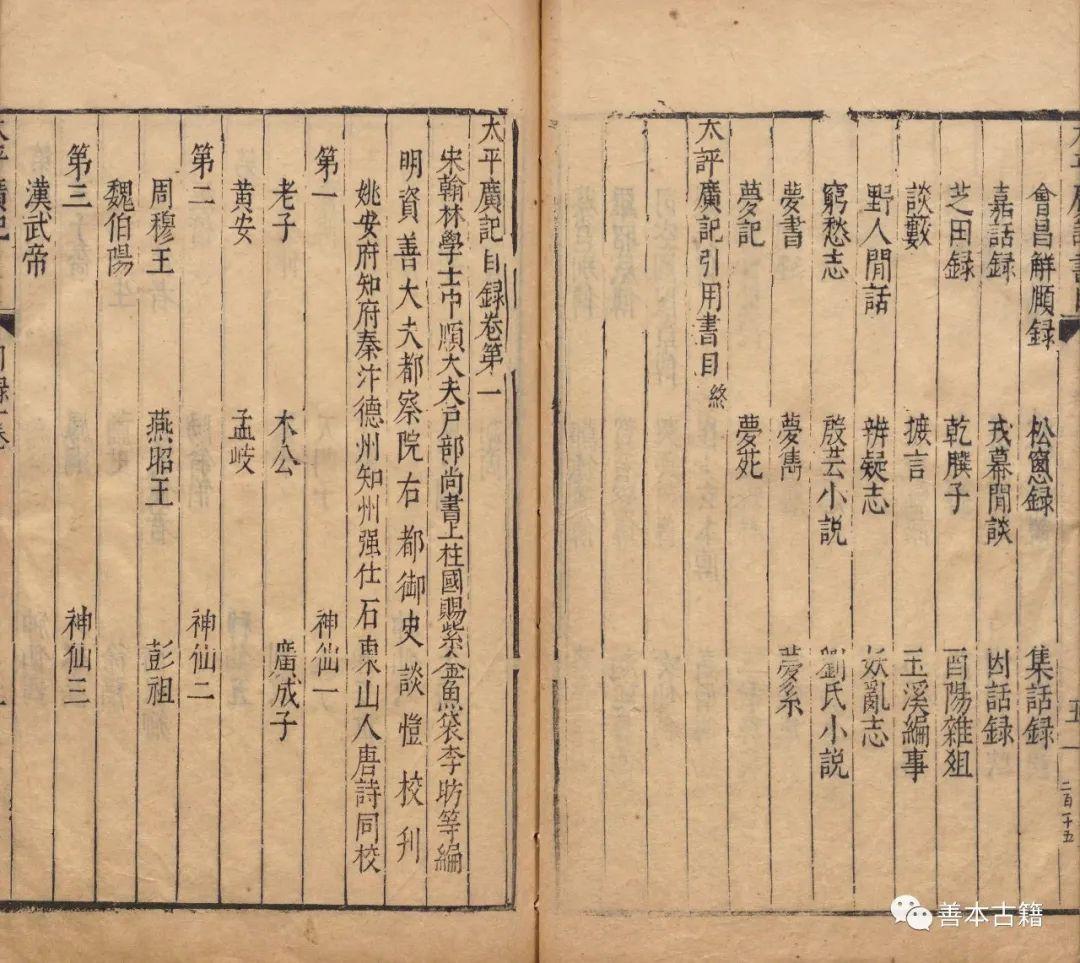 會昌解頤録 松窻録 集話録
嘉話録 戎幕閒談 因話録
芝田録 乾𦠆子 酉陽雜俎
談藪 摭言 玉溪編事
野人閒話 辨疑志 妖亂志
窮愁志 殷芸小説 劉氏小説
夢書 夢雋 夢系
夢記 夢苑
太評廣記引用書目 終
太平廣記目録卷第一
宋翰林學士中順大夫戸部尚書上柱國賜紫金魚袋李昉等編
明資善大夫都察院右都御史談愷校刋
姚安府知府秦汴德州知州强仕石東山人唐詩同校
第一 神仙一
老子 木公 廣成子
黄安 孟岐
第二 神仙二
周穆王 燕昭王 彭祖
魏伯陽
第三 神仙三
漢武帝
二百一五
善本古籍